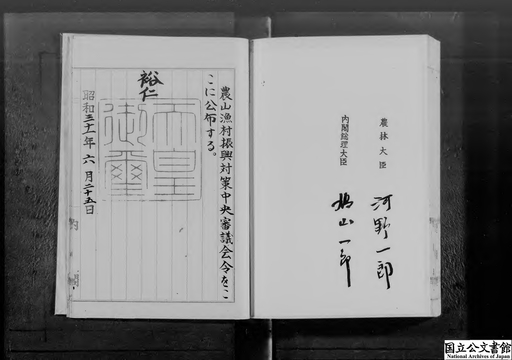 農林大臣 河野一郎
内閣総理大臣 鳩山一郎
農山漁村振興対策中央審議会令をこ
こに公布する。
裕仁
天皇
御璽
昭和三十一年六月二十五日
国立公文書館
National Archives of Japan